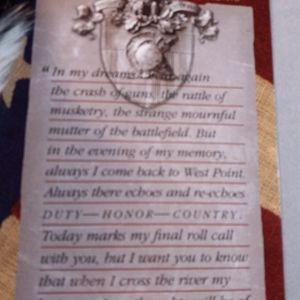 “In my dreams I hear again
the crash of guns, the rattle of
musketry, the strange mournful
mutter of the battlefield. But
in the evening of my memory,
always I come back to West Point.
Always there echoes and re-echoes
DUTY—HONOR—COUNTRY.
Today marks my final roll call
with you, but I want you to know
that when I cross the river my